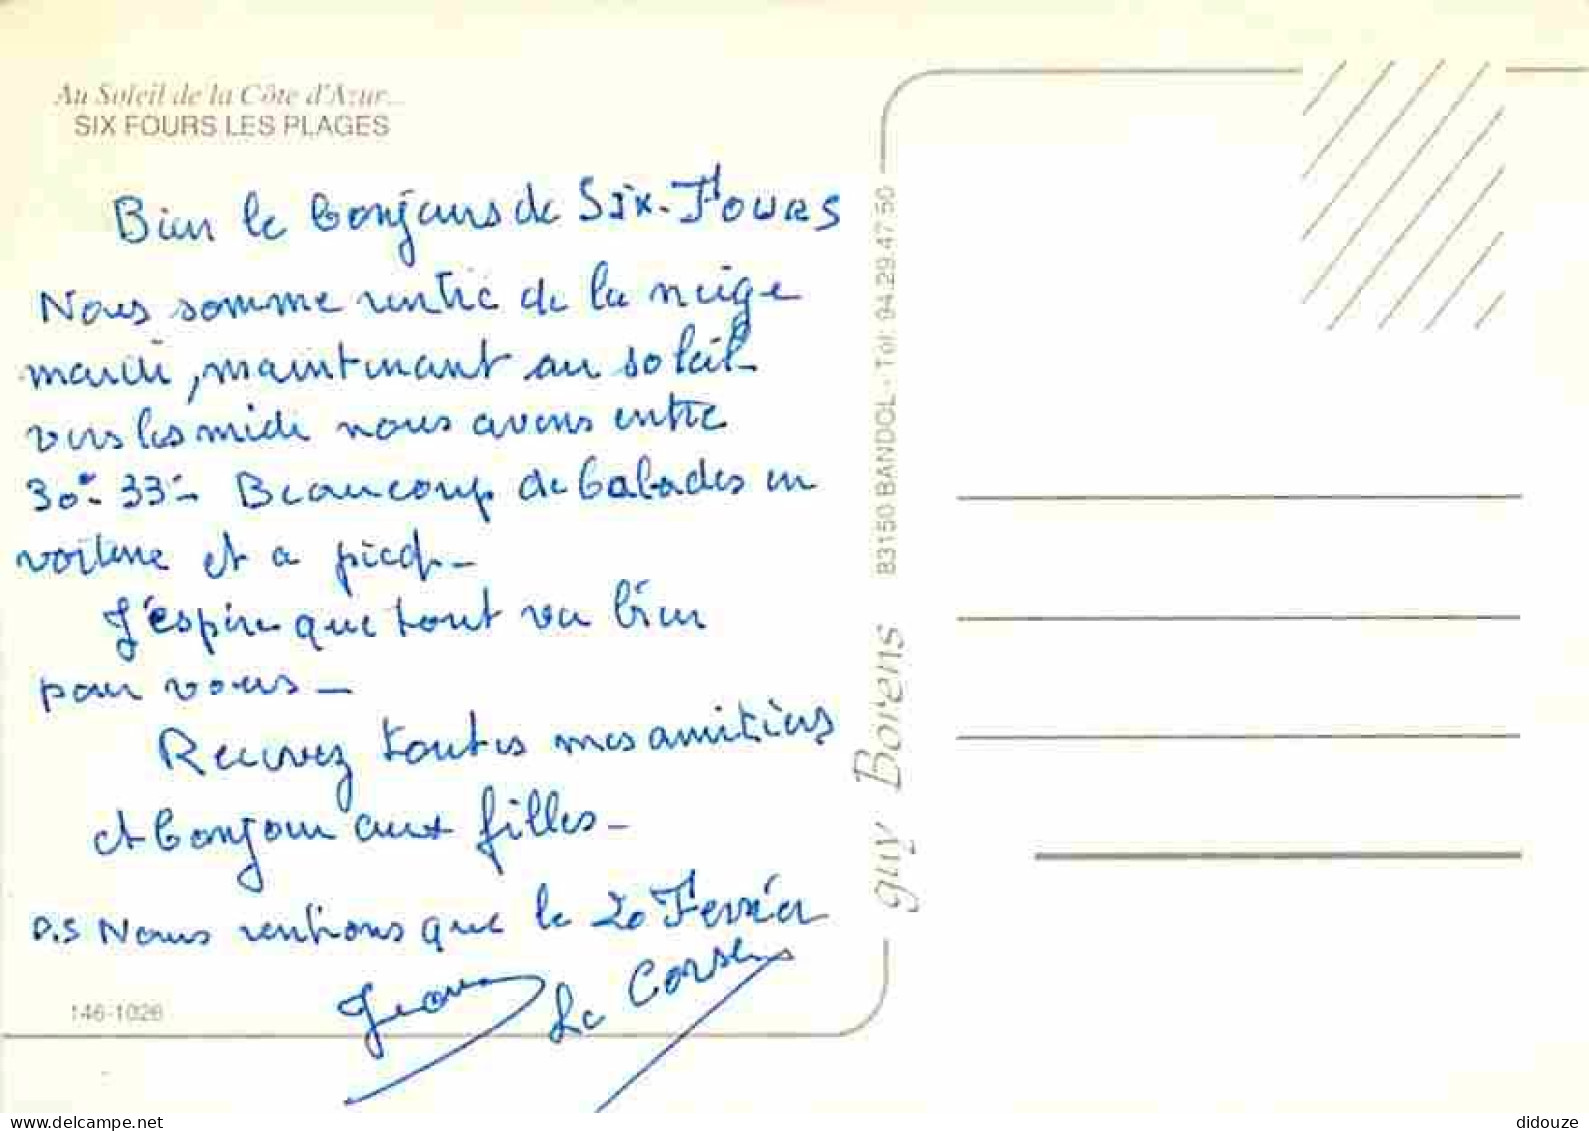 Au Soleil de la Côte d'Azur...
SIX FOURS LES PLAGES
Bien le bonjours de SIX-FOURS
Nous somme rentré de la neige
mardi, maintenant au soleil
vers les midi nous avons entre
30°- 33°- Beaucoup de balades en
voiture et a pied-
J'éspère que tout va bien
pour vous-
Recevez toutes mes amitiés
et bonjour aux filles-
P.S Nous rentrons que le 20 Fevrier
Jean
Le Corse
146-1026
guy Borens 83150 BANDOL - Tél: 94.29.47.50
delcampe.net
didouze